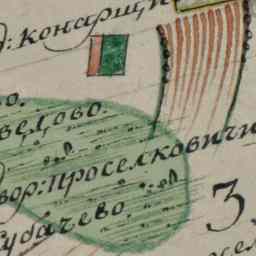 д: конарщи
во.
ведово.
вор: проселковичи
Кубачево
3